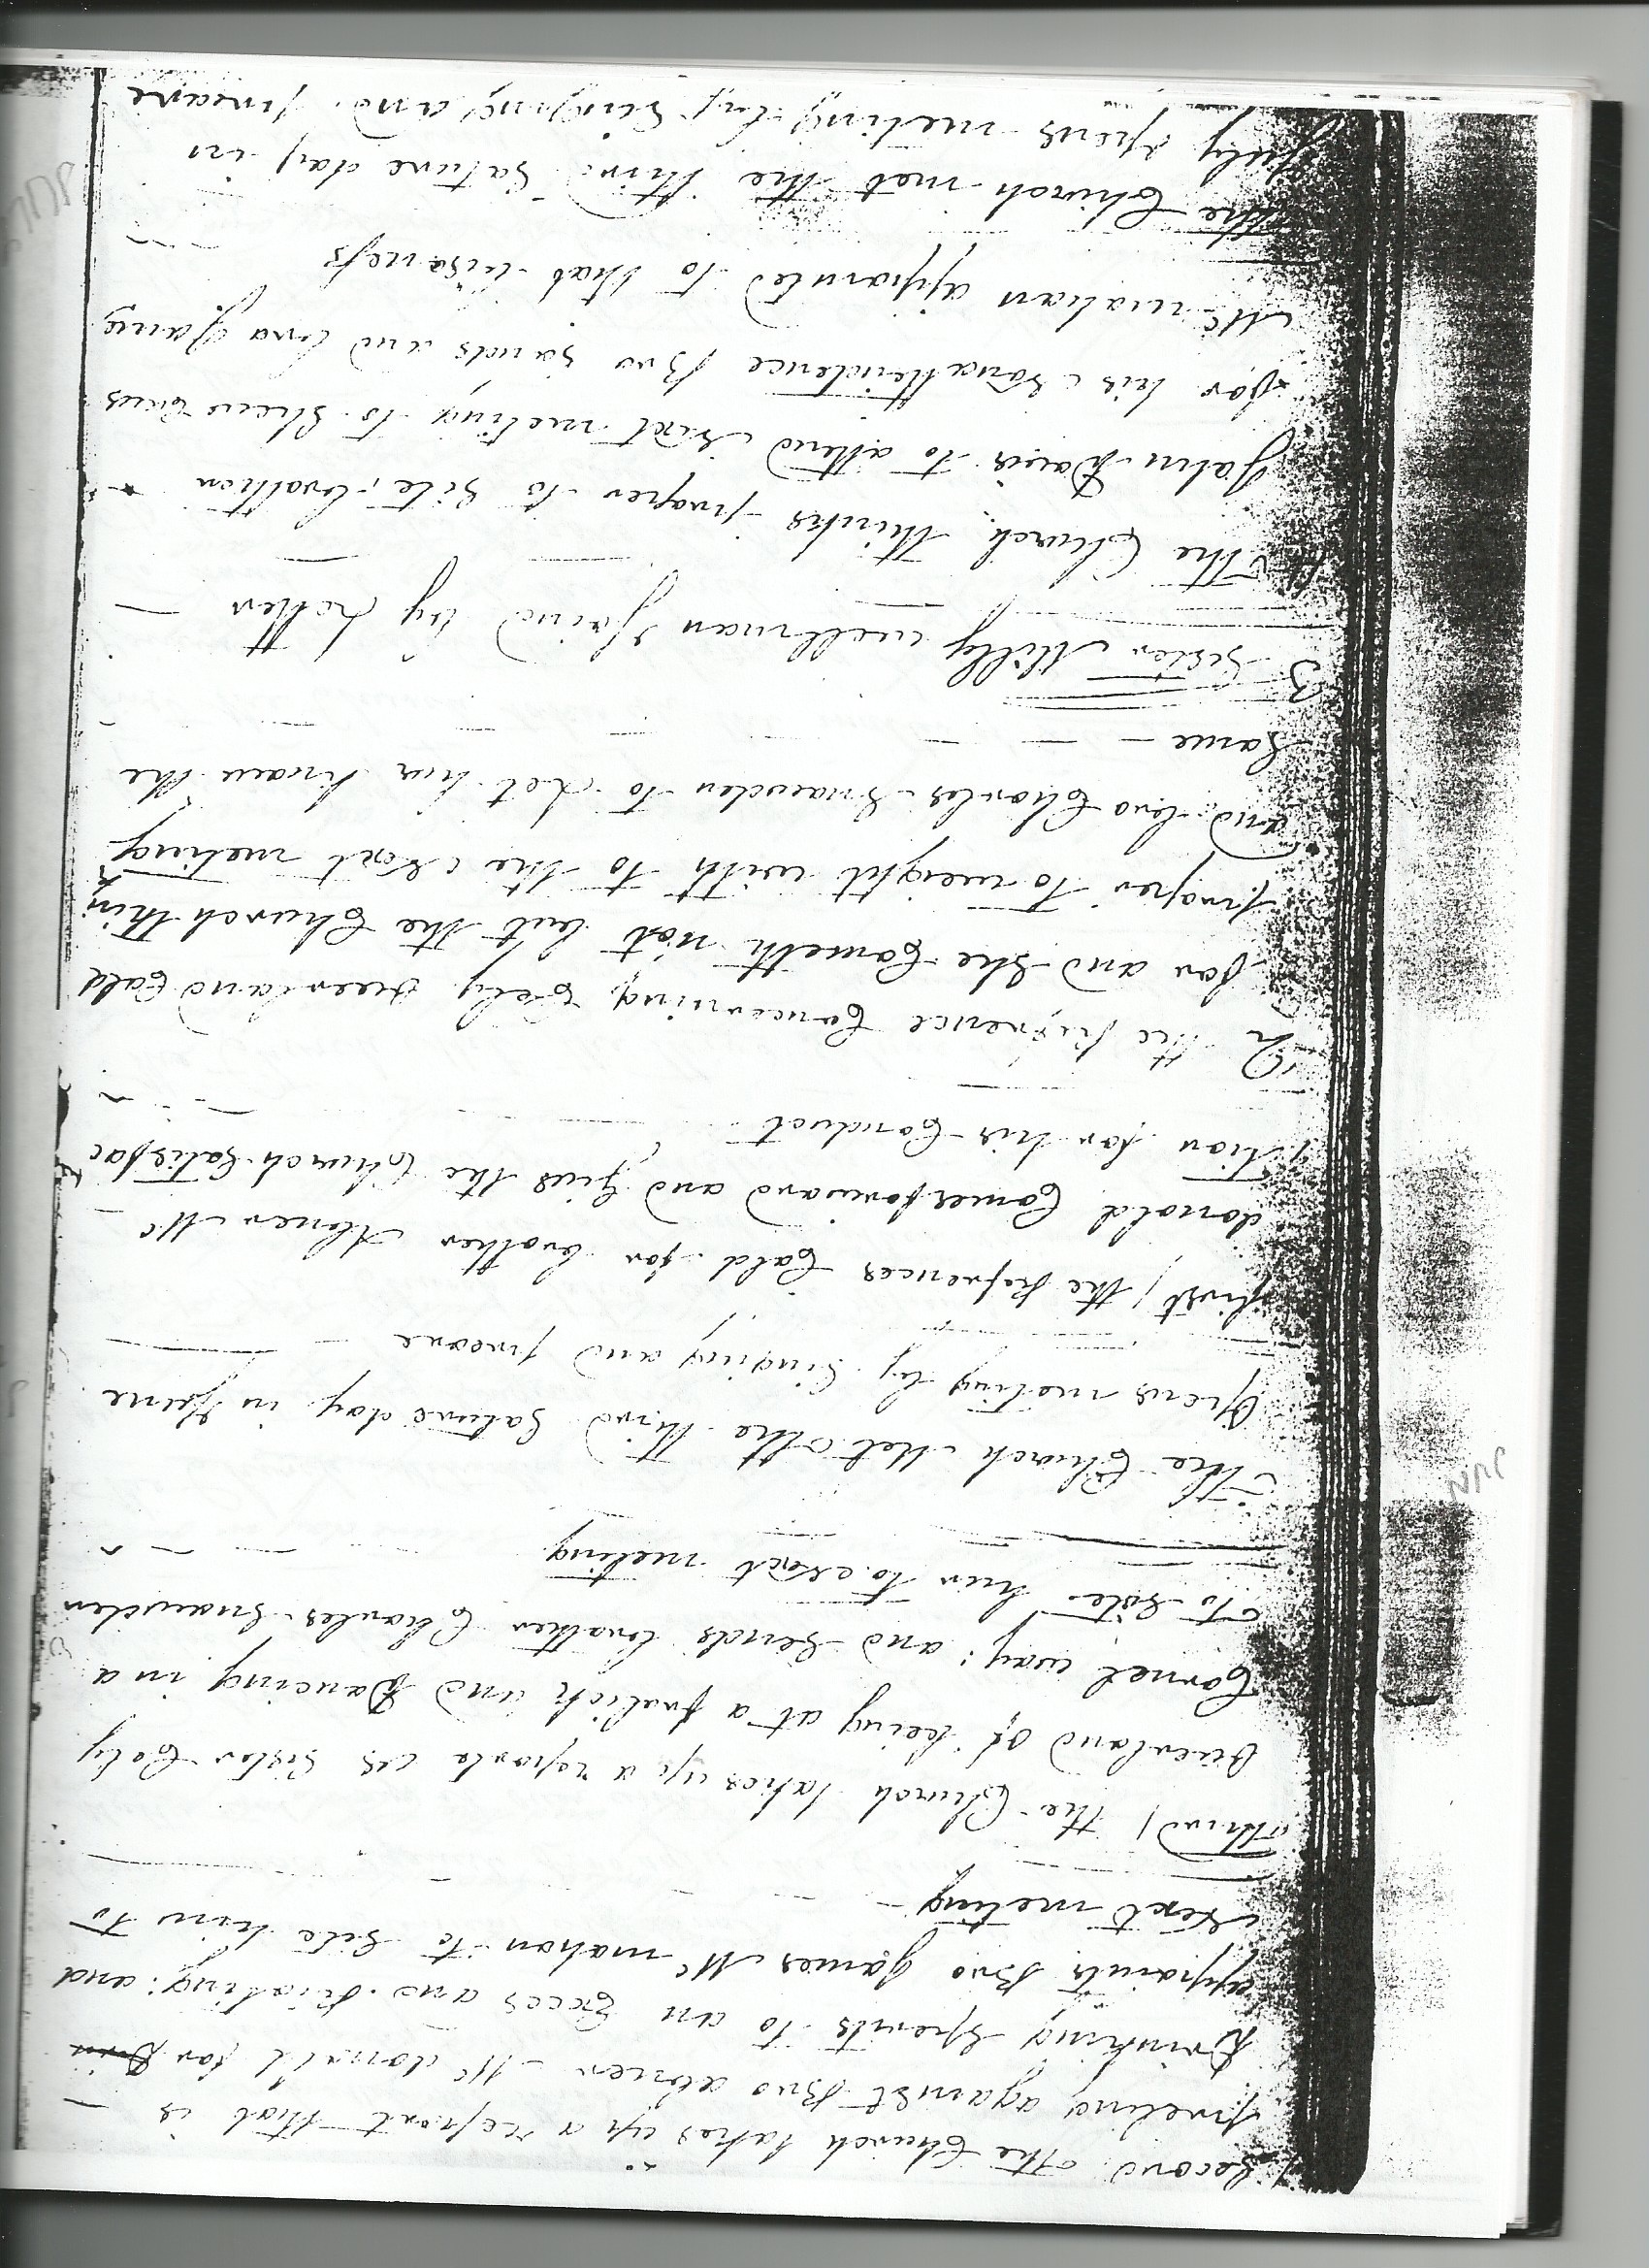 Second the Church takes up a report that is
preveling against Bro abner Mc donald for Drin
Drinking Spirits to an Exces and : and
appoints Bro James Mc mahon to Site him to
Next meeting
Third / the Church takes up a reporte as Sister Cely
overland of being at a frolick and Dancing in a
Cornel way : and Sends brother Charles Snawden
to Site her to Next meeting
JUN
The Church Met the Third Saturday in June
Opens meting by Singing and
first / the Refrences Cald for brother Abner Mc
donald Comes forward and Gives the Church Satisfac
tion for his Conduct
2 the Refrence Concerning Cely overland Cald
for and She Cometh not but the Church think
proper to weight with to the Next meting
and bro Charles Snawden to Let hur know the
Same
3 Sister Milly wellman Joind by Letter
the Church thinks proper to Site brother
John Davis to attend Next meting to Shew Caus
for his Nonattendence Bro Sands and bro James
Mc mahan appointed to that bisaness
JULY
the Church met the third Saturday in
July opens meeting by Singing and